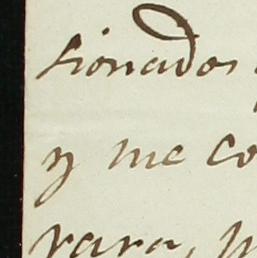 sionados
y me co
rara,